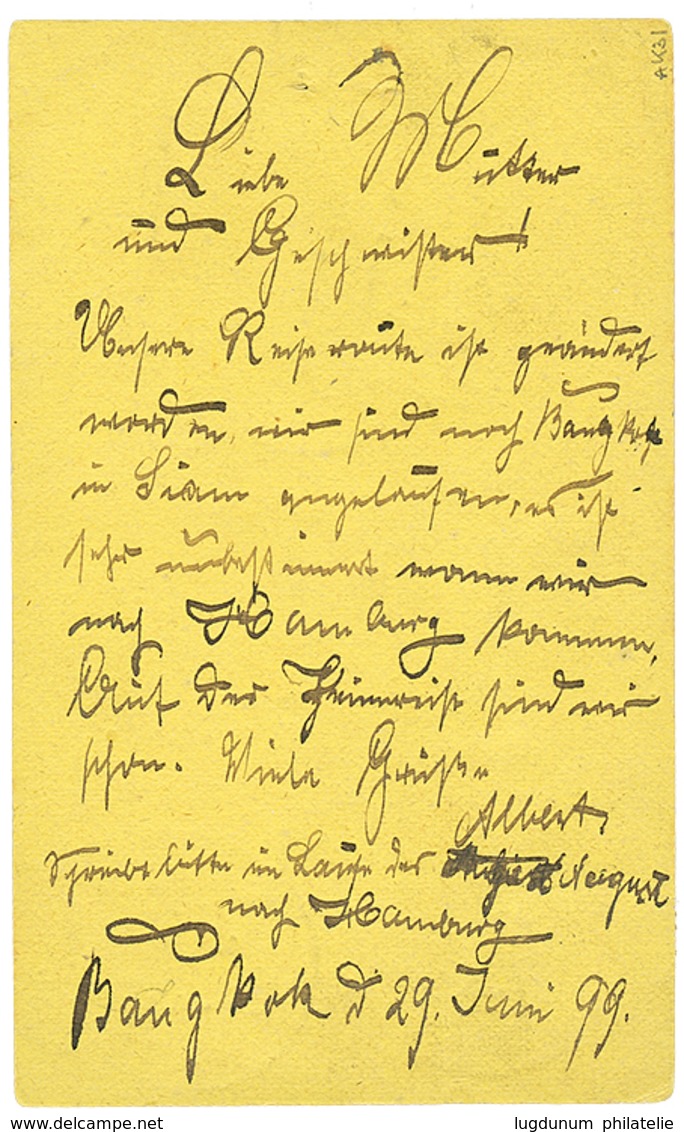 AK31
Liebe Mutter
und Geschwister!
Unsere Reiseroute ist geändert
worden, wir sind noch Bangkok
in Siam angelaufen, es ist
sehr unbestimmt wann wir
nach Hamburg kommen.
Auf der Heimreise sind wir
schon. Viele Grüße
Albert.
Schreibe bitte im Laufe des August
nach Hamburg
Bangkok d 29. Juni 99.
lugdunum philatelie